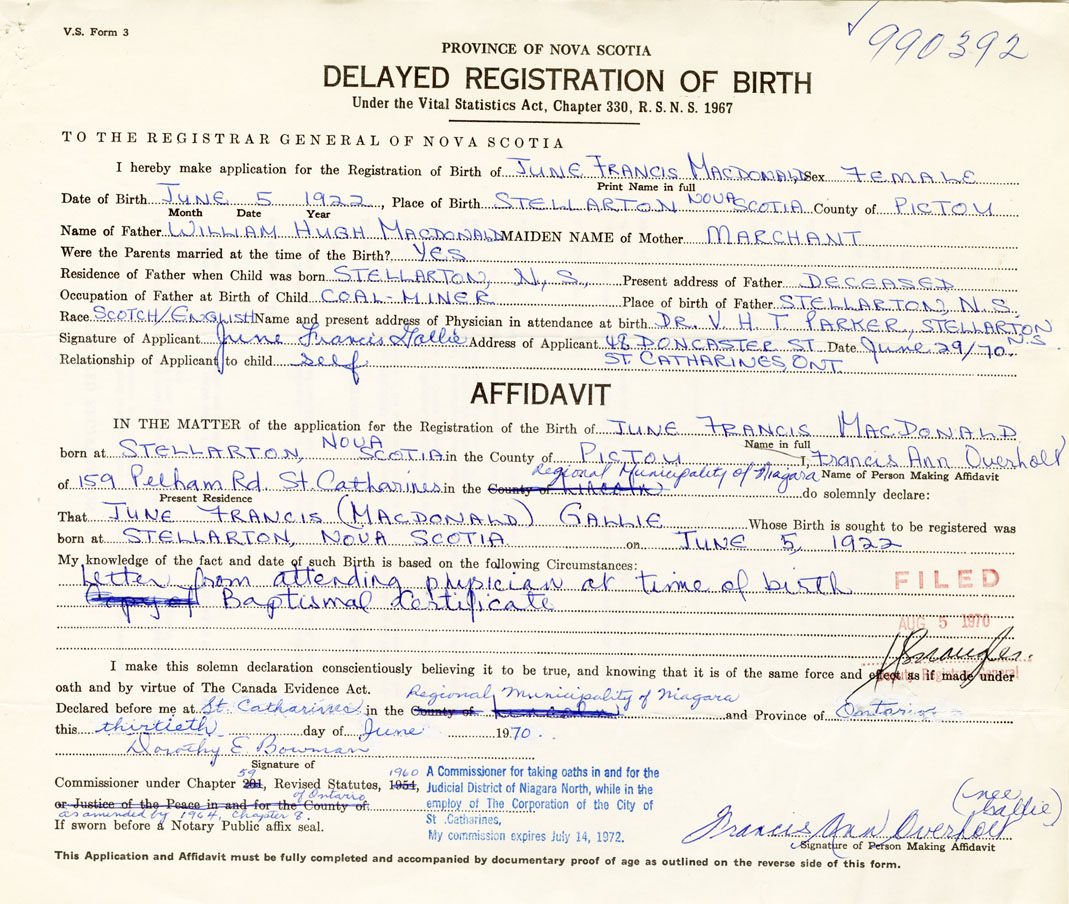 V.S. Form 3
990392
PROVINCE OF NOVA SCOTIA
DELAYED REGISTRATION OF BIRTH
Under the Vital Statistics Act, Chapter 330, R.S.N.S. 1967
TO THE REGISTRAR GENERAL OF NOVA SCOTIA
I hereby make application for the Registration of Birth of JUNE FRANCIS MACDONALD Sex FEMALE
Print Name in full
Date of Birth JUNE 5 1922, Place of Birth STELLARTON NOVA SCOTIA County of PICTOU
Month Date Year
Name of Father WILLIAM HUGH MACDONALD MAIDEN NAME of Mother MARCHANT
Were the Parents married at the time of the Birth? YES
Residence of Father when Child was born STELLARTON, N.S., Present address of Father DECEASED
Occupation of Father at Birth of Child COAL-MINER Place of birth of Father STELLARTON, N.S.
Race SCOTCH/ENGLISH Name and present address of Physician in attendance at birth DR. V. H. T. PARKER, STELLARTON N.S.
Signature of Applicant June Francis Gallie Address of Applicant 48 DONCASTER ST Date June 29/70
Relationship of Applicant to child self ST CATHARINES, ONT
AFFIDAVIT
IN THE MATTER of the application for the Registration of the Birth of JUNE FRANCIS MACDONALD
Name in full
born at STELLARTON, NOVA SCOTIA in the County of PICTOU I, Francis Ann Overholt
Name of Person Making Affidavit
of 159 Pelham Rd. St. Catharines in the County of LINCOLN Regional Municipality of Niagara do solemnly declare:
Present Residence
That JUNE FRANCIS (MACDONALD) GALLIE Whose Birth is sought to be registered was
born at STELLARTON, NOVA SCOTIA on JUNE 5, 1922
My knowledge of the fact and date of such Birth is based on the following Circumstances:
Letter from attending physician at time of birth
Copy of Baptismal Certificate
FILED
AUG 5 1970
I make this solemn declaration conscientiously believing it to be true, and knowing that it is of the same force and effect as if made under
oath and by virtue of The Canada Evidence Act.
Declared before me at St. Catharines in the County of Regional Municipality of Niagara and Province of Ontario
this thirtieth day of June 1970
Dorothy E Bowman
Signature of
Commissioner under Chapter 201, 59 Revised Statutes, 1954, 1960 of Ontario
or Justice of the Peace in and for the County of.
as amended by 1964, Chapter 8.
If sworn before a Notary Public affix seal.
A Commissioner for taking oaths in and for the
Judicial District of Niagara North, while in the
employ of The Corporation of the City of
St. Catharines,
My commission expires July 14, 1972.
(nee Gallie)
Francis Ann Overholt
Signature of Person Making Affidavit
This Application and Affidavit must be fully completed and accompanied by documentary proof of age as outlined on the reverse side of this form.